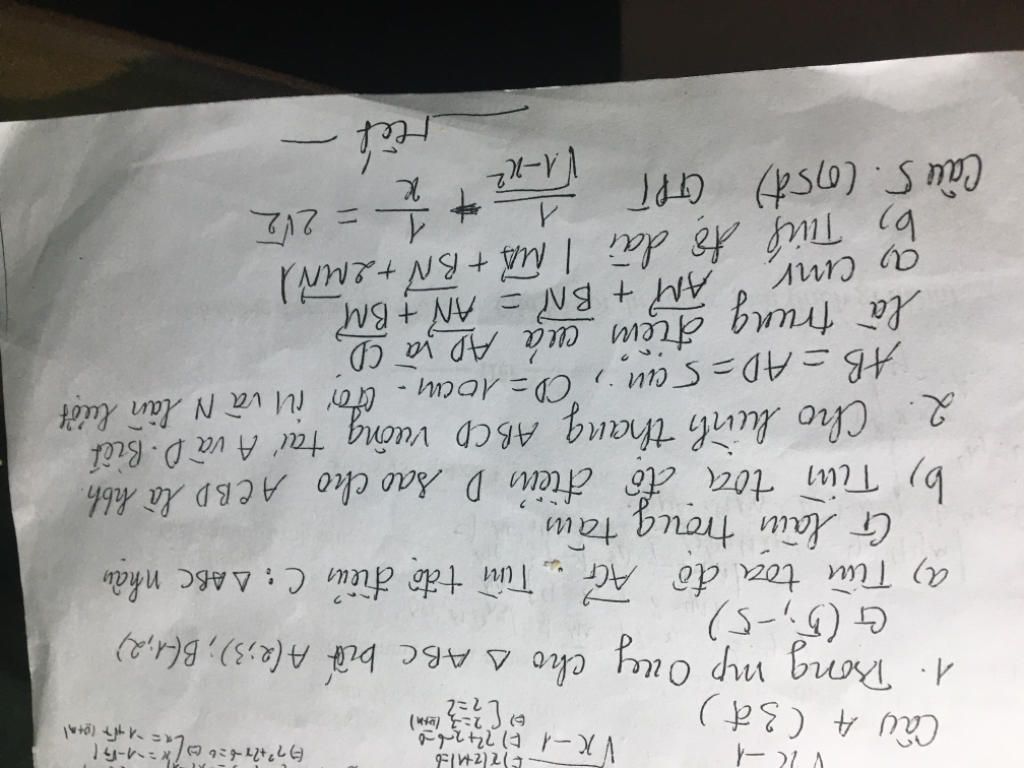 √x-1
√x-1
Câu 4 (3đ)
1. Trong mp Oxy cho Δ ABC biết A(2;3); B(-1;2)
G(5;-5)
a) Tìm toạ độ AG. Tìm tđộ điểm C: Δ ABC nhận
G làm trọng tâm
b) Tìm toạ độ điểm D sao cho ACBD là hbh.
2. Cho hình thang ABCD vuông tại A và D. Biết
AB = AD = 5 cm; CD = 10cm. Gọi M và N lần lượt
là trung điểm của AD và CD
a) cmr AM + BN = AN + BM
b) Tính độ dài | MA + BN + 2MN |
Câu 5. (0,5đ) GPT 1/√1-x² + 1/x = 2√2
— Hết —